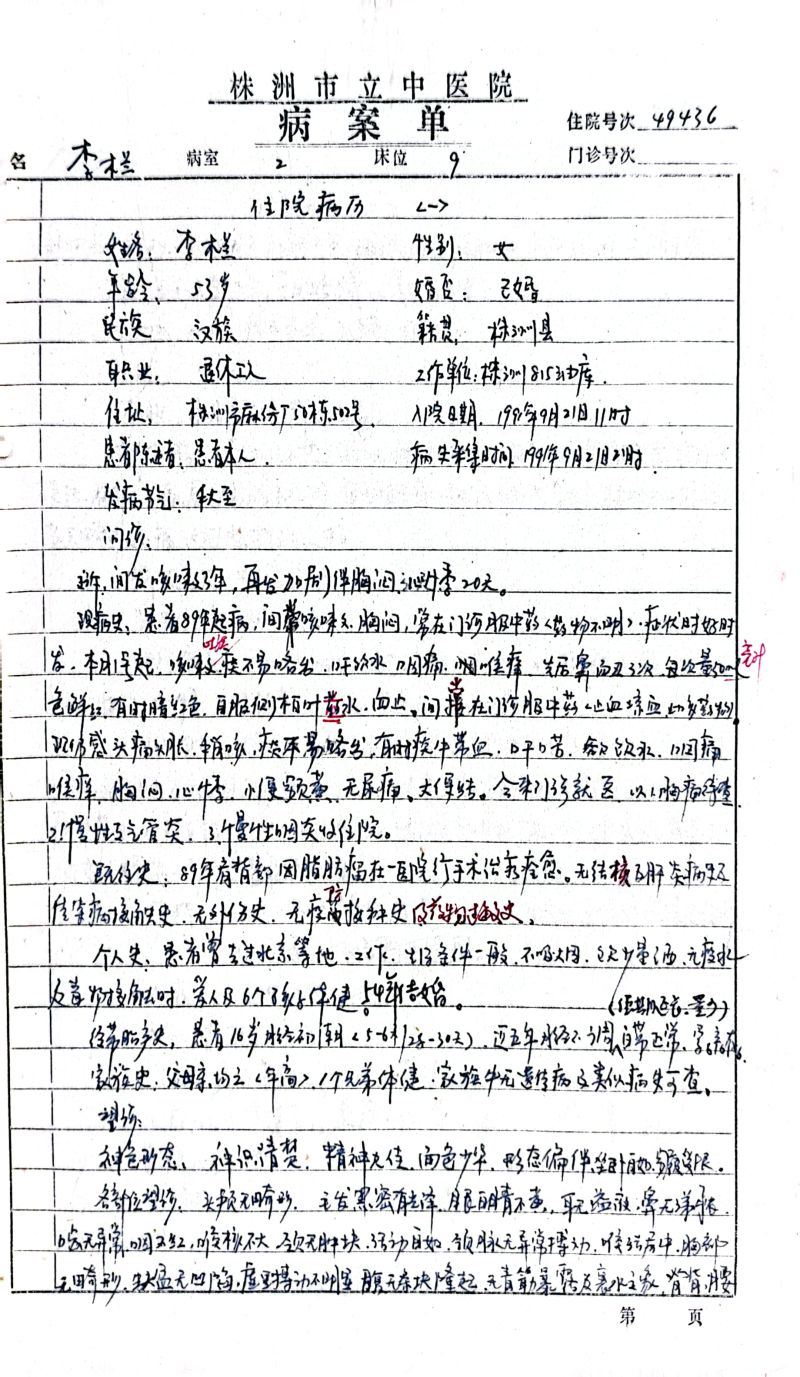 株洲市立中医院
病案单
住院号次 49436
名 李木兰 病室 2 床位 9 门诊号次
住院病历 <一>
姓名: 李木兰 性别: 女
年龄: 53岁 婚否: 已婚
民族 汉族 籍贯: 株洲县
职业: 退休工人 工作单位: 株洲815油库.
住址: 株洲市麻纺厂50栋502号. 入院日期. 1991年9月21日11时
患者陈述者: 患者本人. 病史采集时间 1991年9月21日21时.
发病节气: 秋至
问诊:
主诉: 间发咳嗽3年, 再发加剧伴胸闷心悸20天。
现病史: 患者89年起病, 间常咳嗽, 胸闷, 常在门诊服中药<药物不明>. 症状时好时
发. 本月1号起, 咳嗽 吐痰 痰不易咯出, 口干欲饮水 咽痛 咽喉痒, 先后鼻衄血3次, 每次量50 毫升
色鲜红, 有时暗红色, 自服侧柏叶药水, 血止。间常在门诊服中药<止血
感头痛头胀, 稍咳, 痰不易咯出, 有时痰中带血, 口干口苦, 欲饮水, 咽痛
喉痒, 胸闷, 心悸, 小便黄, 无尿痛, 大便结。今来门诊就医, 以1.胸痛待查
2.慢性支气管炎, 3.慢性咽炎收住院。
既往史: 89年肩背部因脂肪瘤在一医院行手术治疗痊愈。无结核及肝炎病史及
传染病接触史, 无外伤史, 无疫苗 防 接种史 及药物过敏史。
个人史: 患者曾去过北京等地. 工作, 生活条件一般, 不吸烟, 饮少量酒, 无疫水
及毒物接触史, 爱人及6个孩子体健。54年结婚。
(经期延长, 量多)
经带胎产史: 患者16岁月经初潮<5-6天/28-30天>, 近五年月经不调, 白带正常,
家族史: 父母亲均亡<年高>, 1个兄弟体健. 家族中无遗传病及类似病史可查。
望诊:
神色形态: 神识清楚, 精神欠佳, 面色少华, 形态偏胖, 坐卧自如,
各部位望诊: 头颅无畸形, 毛发黑密有光泽, 眼白睛不黄, 耳无溢液, 鼻无
齿无异常, 咽不红, 喉核不大, 颈无肿块, 活动自如, 颈脉无异常搏动, 喉结居中, 胸部
无畸形, 缺盆无凹陷, 虚里搏动不明显, 腹无条块隆起, 无青筋暴露及裹水之象, 脊背, 腰
第 页